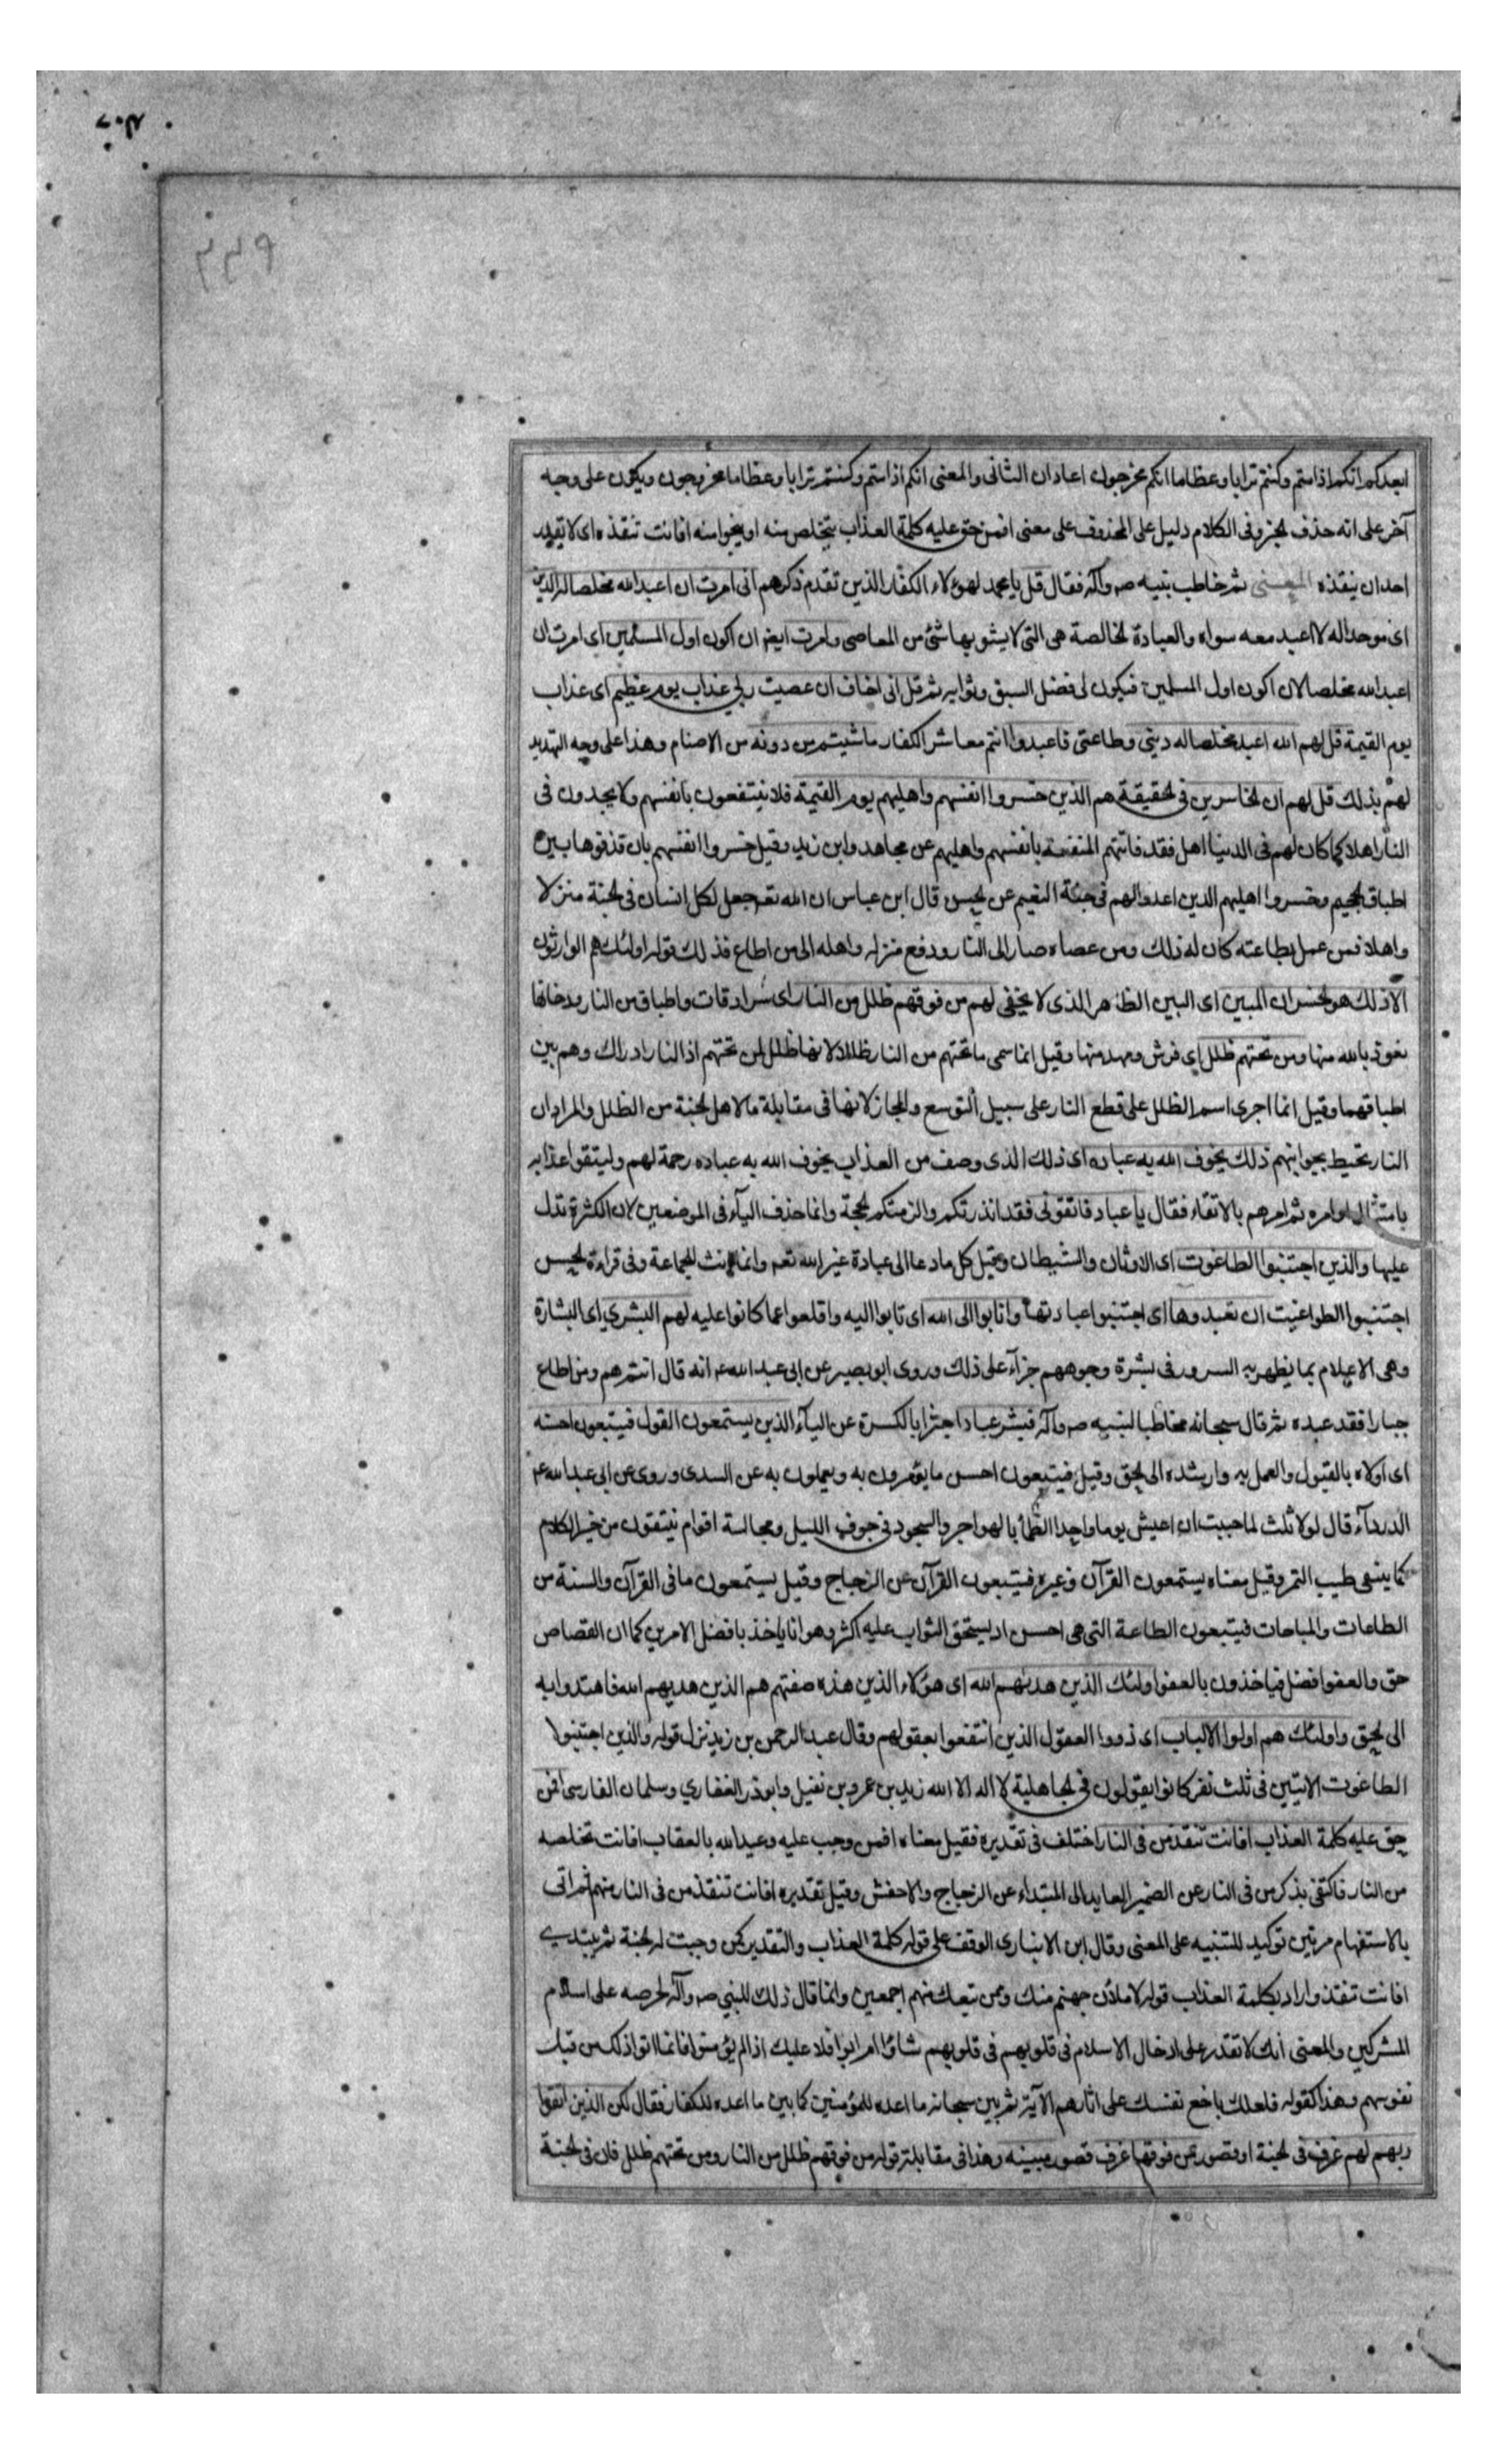 ايعدكم انكم اذا متم وكنتم ترابا وعظاما انكم مخرجون اعاد ان الثانى والمعنى انكم اذا متم وكنتم ترابا وعظاما مخرجون ويكون على وجه
آخر على انه حذف لخبر وفى الكلام دليل على المحذوف على معنى افمن حق عليه كلمة العذاب يتخلص منه او ينجوا منه افانت تنقذه اى لا تقدر
احد ان ينقذه المعنى ثم خاطب نبيه صه وآله فقال قل يا محمد لهؤلاء الكفار الذين تقدم ذكرهم انى امرت ان اعبد الله مخلصا له الدين
اى موحدا له لا اعبد معه سواه والعبادة لخالصة هى التى لا يشوبها شئ من المعاصى وامرت ايضا ان اكون اول المسلمين اى امرت ان
اعبد الله مخلصا لان اكون اول المسلمين فيكون لى فضل السبق وثوابه ثم قل انى اخاف ان عصيت ربى عذاب يوم عظيم اى عذاب
يوم القيمة قل لهم الله اعبد مخلصا له دينى وطاعتى فاعبدوا انتم معاشر الكفار ما شيتم من دونه من الاصنام وهذا على وجه التهديد
لهم بذلك قل لهم ان لخاسرين فى لحقيقة هم الذين خسروا انفسهم واهليهم يوم القيمة فلا ينتفعون بانفسهم ولا يجدون فى
النار اهلا كما كان لهم فى الدنيا اهل فقد فاتتهم المنفعة بانفسهم واهليهم عن مجاهد وابن زيد وقيل خسروا انفسهم بان قذفوها بين
اطباق لجحيم وخسروا اهليهم الذين اعدوا لهم فى جنة النعيم عن لحسن قال ابن عباس ان الله تعه جعل لكل انسان فى لجنة منزلا
واهلا فمن عمل بطاعته كان له ذلك ومن عصاه صار الى النار ودفع منزله واهله الى من اطاع فذلك قوله اولئك هم الوارثون
الا ذلك هو لخسران المبين اى البين الظاهر الذى لا يخفى لهم من فوقهم ظلل من النار اى سرادقات واطباق من النار ودخانها
نعوذ بالله منها ومن تحتهم ظلل اى فرش ومهد منها وقيل انما سمى ما تحتهم من النار ظللا لانها ظلل لمن تحتهم اذ النار ادراك وهم بين
اطباقهما وقيل انما اجرى اسم الظلل على قطع النار على سبيل التوسع والمجاز لانها فى مقابلة ما لاهل لجنة من الظلل والمراد ان
النار تحيط بجوانبهم ذلك يخوف الله به عباده اى ذلك الذى وصف من العذاب يخوف الله به عباده رحمة لهم وليتقوا عذابه
بامتثال اوامره ثم امرهم بالاتقاء فقال يا عباد فاتقونى فقد انذرتكم والزمتكم لحجة وانما حذف اليآء فى الموضعين لان الكثرة تدل
عليها والذين اجتنبوا الطاغوت اى الاوثان والشيطان وقيل كل ما دعا الى عبادة غير الله تعه وانما انث للجماعة وفى قراءة لحسن
اجتنبوا الطواغيت ان تعبدوها اى اجتنبوا عبادتها وانابوا الى الله اى تابوا اليه واقلعوا عما كانوا عليه لهم البشرى اى البشارة
وهى الاعلام بما يظهر به السرور فى بشرة وجوههم جزآء على ذلك وروى ابو بصير عن ابى عبد الله عه انه قال انتم هم ومن اطاع
جبارا فقد عبده ثم قال سبحانه مخاطبا لنبيه صه وآله فبشر عباد اجتزا بالكسرة عن اليآء الذين يستمعون القول فيتبعون احسنه
اى اولاه بالقبول والعمل به وارشده الى لحق وقيل فيتبعون احسن ما يؤمرون به ويعملون به عن السدى وروى عن ابى عبد الله عه
الدردآء قال لولا ثلث لما حببت ان اعيش يوما واحدا الظمأ بالهواجر والسجود فى جوف الليل ومجالسة اقوام ينتقون من خير الكلام
كما ينتقى طيب التمر وقيل معناه يستمعون القرآن وغيره فيتبعون القرآن عن الزجاج وقيل يستمعون ما فى القرآن والسنة من
الطاعات والمباحات فيتبعون الطاعة التى هى احسن اذ يستحق الثواب عليه اكثر وهو انا ياخذ بافضل الامرين كما ان القصاص
حق والعفو افضل فياخذون بالعفو اولئك الذين هديهم الله اى هؤلاء الذين هذه صفتهم هم الذين هديهم الله فاهتدوا به
الى لحق واولئك هم اولوا الالباب اى ذووا العقول الذين انتفعوا بعقولهم وقال عبد الرحمن بن زيد نزل قوله والذين اجتنبوا
الطاغوت الايتين فى ثلث نفر كانوا يقولون فى لجاهلية لا اله الا الله زيد بن عمرو بن نفيل وابو ذر الغفارى وسلمان الفارسى افمن
حق عليه كلمة العذاب افانت تنقذ من فى النار اختلف فى تقديره فقيل معناه افمن وجب عليه وعيد الله بالعقاب افانت تخلصه
من النار فاكتفى بذكر من فى النار عن الضمير العايد الى المبتداء عن الزجاج والاخفش وقيل تقديره افانت تنقذ من فى النار منهم ثم اتى
بالاستفهام مرتين توكيد للتنبيه على المعنى وقال ابن الانبارى الوقف على قوله كلمة العذاب والتقدير كمن وجبت له لجنة ثم يبتدى
افانت تنقذ واراد بكلمة العذاب قوله لاملأن جهنم منك وممن تبعك منهم اجمعين وانما قال ذلك للنبى صه وآله لحرصه على اسلام
المشركين والمعنى انك لا تقدر على ادخال الاسلام فى قلوبهم فى قلوبهم شاؤا ام ابوا فلا عليك اذا لم يؤمنوا فانما اتوا ذلك من قبل
نفوسهم وهذا كقوله فلعلك باخع نفسك على اثارهم الآية ثم بين سبحانه ما اعده للمؤمنين كما بين ما اعده للكفار فقال لكن الذين اتقوا
ربهم لهم غرف فى لجنة او قصور من فوقها غرف قصور مبنية وهذا فى مقابلة قوله من فوقهم ظلل من النار ومن تحتهم ظلل فان فى لجنة